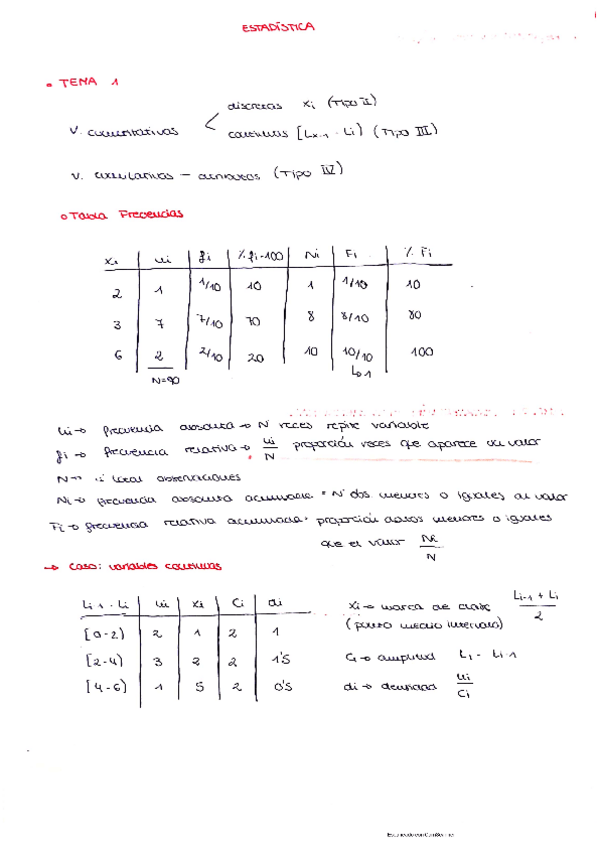 ESTADÍSTICA
• TEMA 1
discretas xi (Tipo II)
V. cuantitativas < continuas [Lx-1 - Li) (Tipo III)
V. cualitativas - atributos (Tipo IV)
o Tabla Frecuencias
xi ni fi %fi·100 Ni Fi % Fi
2 1 1/10 10 1 1/10 10
3 7 7/10 70 8 8/10 80
6 2 2/10 20 10 10/10 100
N=90 ↳1
ni → frecuencia absoluta → Nº veces repite variable
fi → frecuencia relativa → ni/N proporción veces que aparece un valor
N → total observaciones
Ni → frecuencia absoluta acumulada · Nº dos menores o iguales al valor
Fi → frecuencia relativa acumulada · proporción menores o iguales
que el valor Ni/N
→ Caso: variables continuas
Li-1 - Li ni xi Ci di
[0-2) 2 1 2 1
[2-4) 3 2 2 1'5
[4-6) 1 5 2 0'5
xi → marca de clase Li-1 + Li / 2
(punto medio intervalo)
Ci → amplitud Li - Li-1
di → densidad ni/Ci
Escaneado con CamScanner